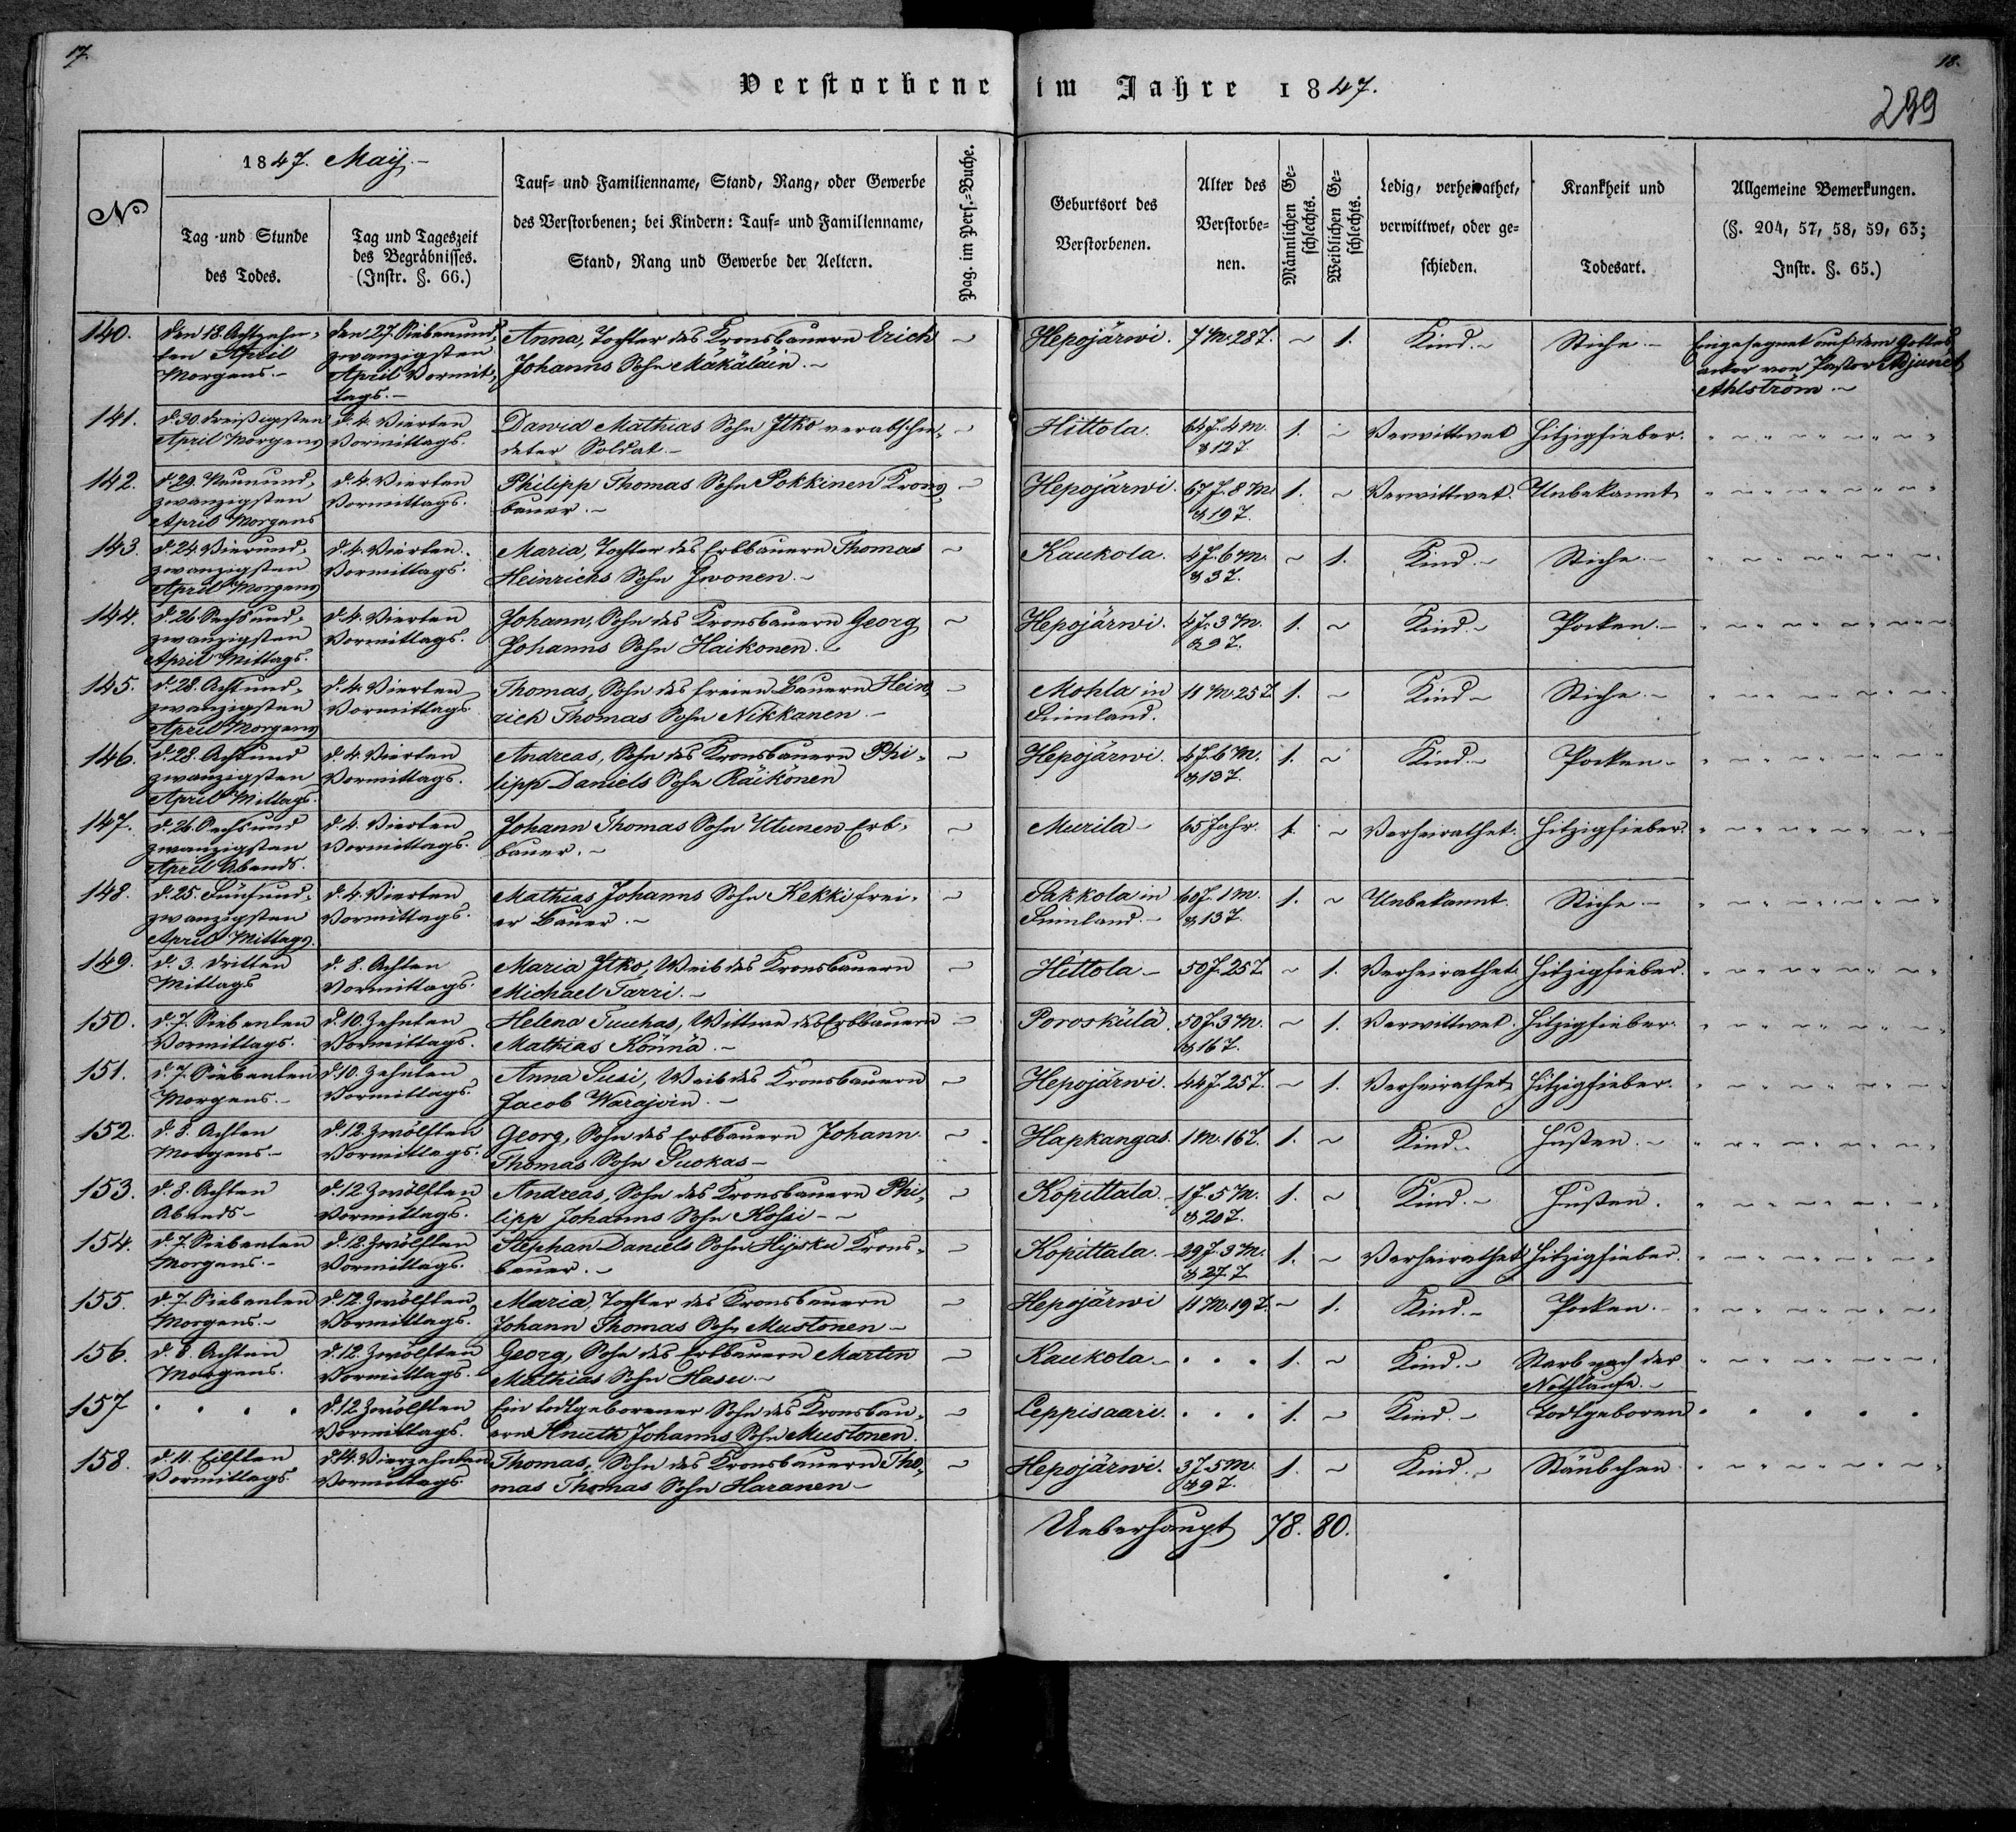 17.
18.
299
Verstorbene im Jahre 1847.
№
1847. Maÿ.-
Tag und Stunde
des Todes.
Tag und Tageszeit
des Begräbnisses.
(Instr. §. 66.)
Tauf- und Familienname, Stand, Rang, oder Gewerbe
des Verstorbenen; bei Kindern: Tauf- und Familienname,
Stand, Rang und Gewerbe der Aeltern.
Pag. im Pers.-Buche.
Geburtsort des
Verstorbenen.
Alter des
Verstorbe-
nen.
Männlichen Ge-
schlechts.
Weiblichen Ge-
schlechts.
Ledig, verheirathet,
verwittwet, oder ge-
schieden.
Krankheit und
Todesart.
Allgemeine Bemerkungen.
(§. 204, 57, 58, 59, 63;
Instr. §. 65.)
140.
den 18. Achtzehn-
ten April
Morgens.-
den 27. Siebenund-
zwanzigsten
April Vormit-
tags.-
Anna, Tochter des Kronsbauern Erich
Johanns Sohn Mäkäläin.-
Hepojärwi.
7 M. 28 T.
1.
Kind.-
Stiche.-
Eingesegnet auf dem Gottes-
acker von Pastor Adjunct
Ahlström.-
141.
d. 30. dreißigsten
April Morgens
d. 4. Vierten
Vormittags.
Dawid Mathias Sohn Itko verabschie-
deter Soldat.-
Hittola.
64 J. 4 M.
& 12 T.
1.
Verwittwet
Hitzigfieber.
142.
d. 29. Neunund-
zwanzigsten
April Morgens
d. 4. Vierten
Vormittags.
Philipp Thomas Sohn Pokkinen Krons-
bauer.-
Hepojärwi.
67 J. 8 M.
& 19 T.
1.
Verwittwet.
Unbekannt
143.
d. 24. Vierund-
zwanzigsten
April Morgens
d. 4. Vierten
Vormittags.
Maria, Tochter des Erbbauern Thomas
Heinrichs Sohn Iwonen.-
Kaukola.
4 J. 6 M.
& 3 T.
1.
Kind.-
Stiche.-
144.
d. 26 Sechsund-
zwanzigsten
April Mittags.
d. 4. Vierten
Vormittags.
Johann, Sohn des Kronsbauern Georg
Johanns Sohn Haikonen.-
Hepojärwi.
4 J. 3 M.
& 9 T.
1.
Kind.-
Pocken.-
145.
d. 28. Achtund-
zwanzigsten
April Morgens
d. 4. Vierten
Vormittags.
Thomas, Sohn des freien Bauern Hein-
rich Thomas Sohn Nikkanen.-
Mohla in
Finnland.
11 M. 25 T.
1.
Kind-
Stiche.-
146.
d. 28. Achtund
zwanzigsten
April Mittags.
d. 4. Vierten
Vormittags.
Andreas, Sohn des Kronsbauern Phi-
lipp Daniels Sohn Räikönen
Hepojärwi.
4 J. 6 M.
& 13 T.
1.
Kind.-
Pocken-
147.
d. 26. Sechsund
zwanzigsten
April Abends.
d. 4. Vierten
Vormittags.
Johann Thomas Sohn Utunen Erb-
bauer.-
Murila-
65 Jahr.
1.
Verheirathet.
Hitzigfieber.
148.
d. 25. Fünfund-
zwanzigsten
April Mittags.
d. 4. Vierten
Vormittags.
Mathias Johanns Sohn Kekki frei-
er Bauer.-
Sakkola in
Finnland.-
60 J. 1 M.
& 13 T.
1.
Unbekannt.
Stiche-
149.
d. 3. dritten
Mittags
d. 8. Achten
Vormittags.
Maria Itko, Weib des Kronsbauern
Michael Tarri.-
Hittola-
50 J. 25 T.
1.
Verheirathet.
Hitzigfieber.
150.
d. 7. Siebenten
Vormittags.
d. 10. Zehnten
Vormittags.
Helena Tuuhas, Wittwe des Erbbauern
Mathias Könnä.-
Poroskülä.
50 J. 3 M.
& 16 T.
1.
Verwittwet.
Hitzigfieber.
151.
d. 7. Siebenten
Morgens.-
d. 10. Zehnten
Vormittags.
Anna Susi, Weib des Kronsbauern
Jacob Warajoin.-
Hepojärwi.
44 J. 25 T.
1.
Verheirathet
Hitzigfieber.
152.
d. 8. Achten
Morgens-
d. 12. Zwölften
Vormittags.
Georg, Sohn des Erbbauern Johann
Thomas Sohn Suokas-
Hapkangas.
1 M. 16 T.
1.
Kind.-
Husten.-
153.
d. 8. Achten
Abends-
d. 12 Zwölften
Vormittags.
Andreas, Sohn des Kronsbauern Phi-
lipp Johanns Sohn Kohsi--
Kopittala.
1 J. 5 M.
& 20 T.
1.
Kind.-
Husten.
154.
d. 7. Siebenten
Morgens.-
d. 12. Zwölften
Vormittags.
Stephan Daniels Sohn Hijsku Krons-
bauer.-
Kopittala.
29 J. 3 M.
& 27 T.
1.
Verheirathet
Hitzigfieber.
155.
d. 7. Siebenten
Morgens.-
d. 12. Zwölften
Vormittags.
Maria, Tochter des Kronsbauern
Johann Thomas Sohn Mustonen-
Hepojärwi
11 M. 19 T.
1.
Kind.-
Pocken.-
156.
d. 8. Achten
Morgens.
d. 12. Zwölften
Vormittags.
Georg, Sohn des Erbbauern Martin
Mathias Sohn Hasu.-
Kaukola-
1.
Kind.-
Starb nach der
Nothtaufe.-
157
d. 12 Zwölften
Vormittags.
Ein todtgeborener Sohn des Kronsbau-
ern Knuth Johanns Sohn Mustonen.
Leppisaari.
1.
Kind.-
Todtgeboren
158.
d. 11. Eilften
Vormittags.
d. 14. Vierzehnten
Vormittags
Thomas, Sohn des Kronsbauern Tho-
mas Thomas Sohn Haranen-
Hepojärwi.
3 J. 5 M.
& 9 T.
1.
Kind.-
Stäubchen
Ueberhaupt 78. 80.